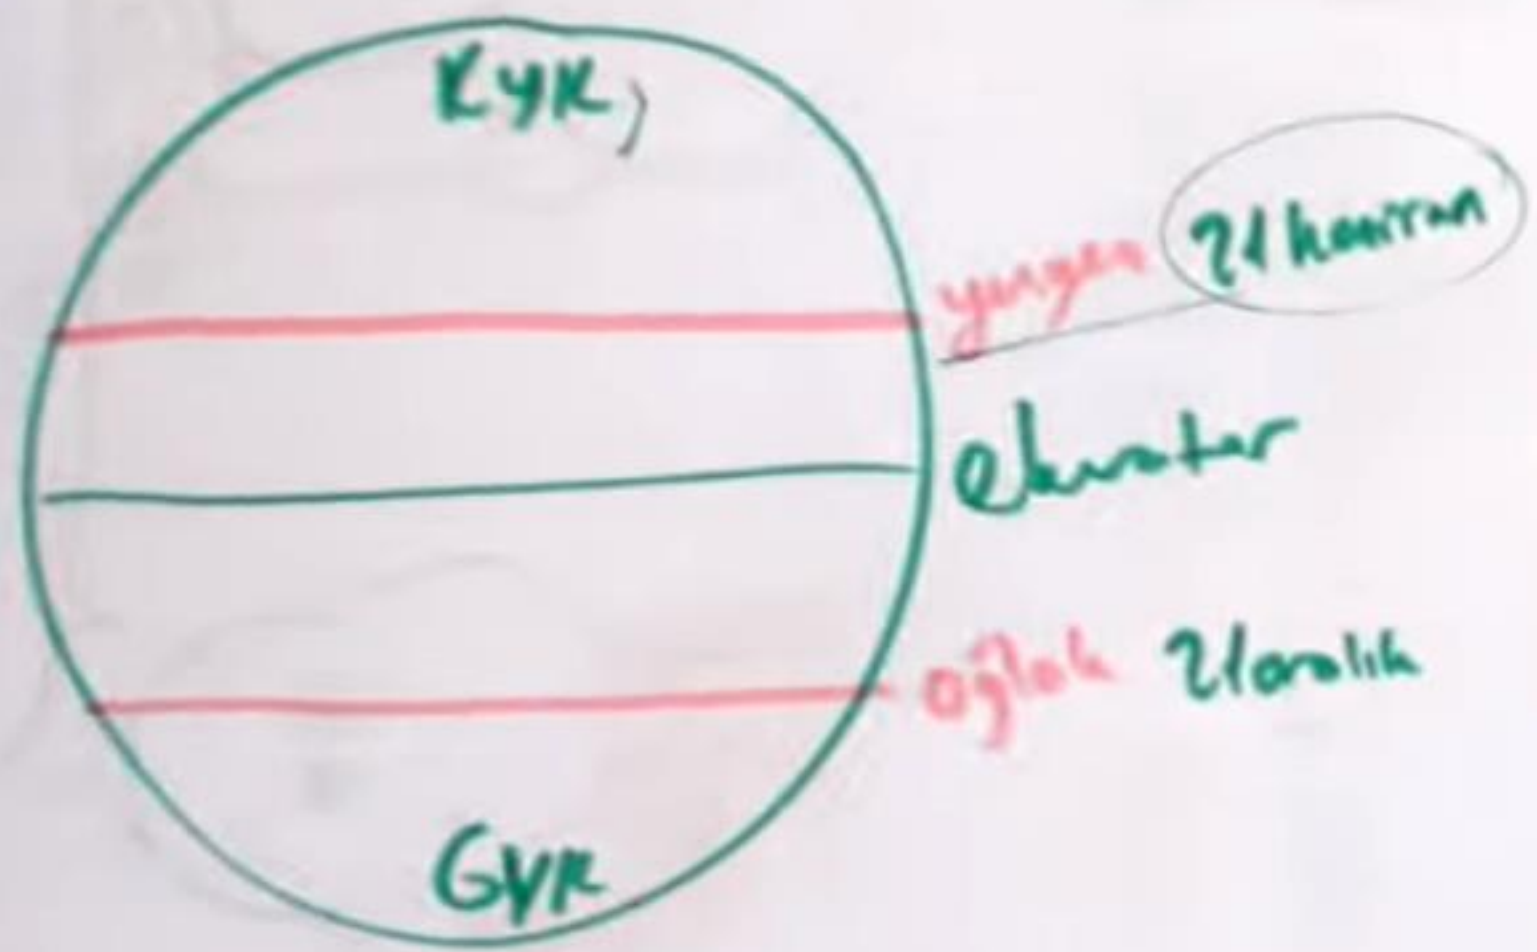 KYK
yengeç 21 haziran
ekvator
oğlak 21 aralık
GYK